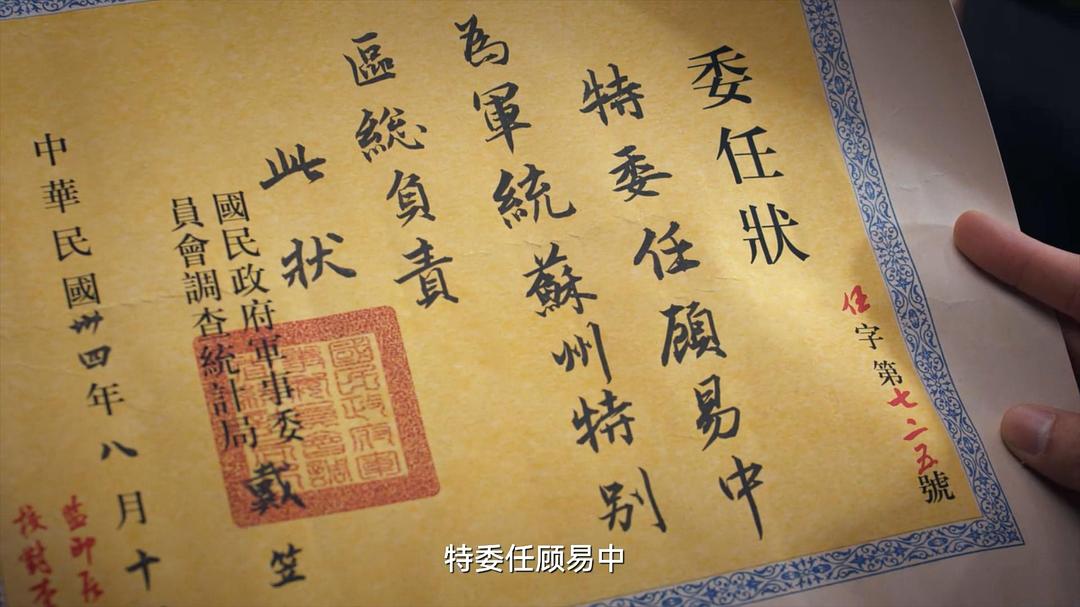 委任狀
特委任顾易中
為軍統蘇州特别
區総負責
此狀
國民政府軍事委
員會調查統計局
戴笠
中華民國卅四年八月十
任字第七二五號
監印
校對
特委任顾易中